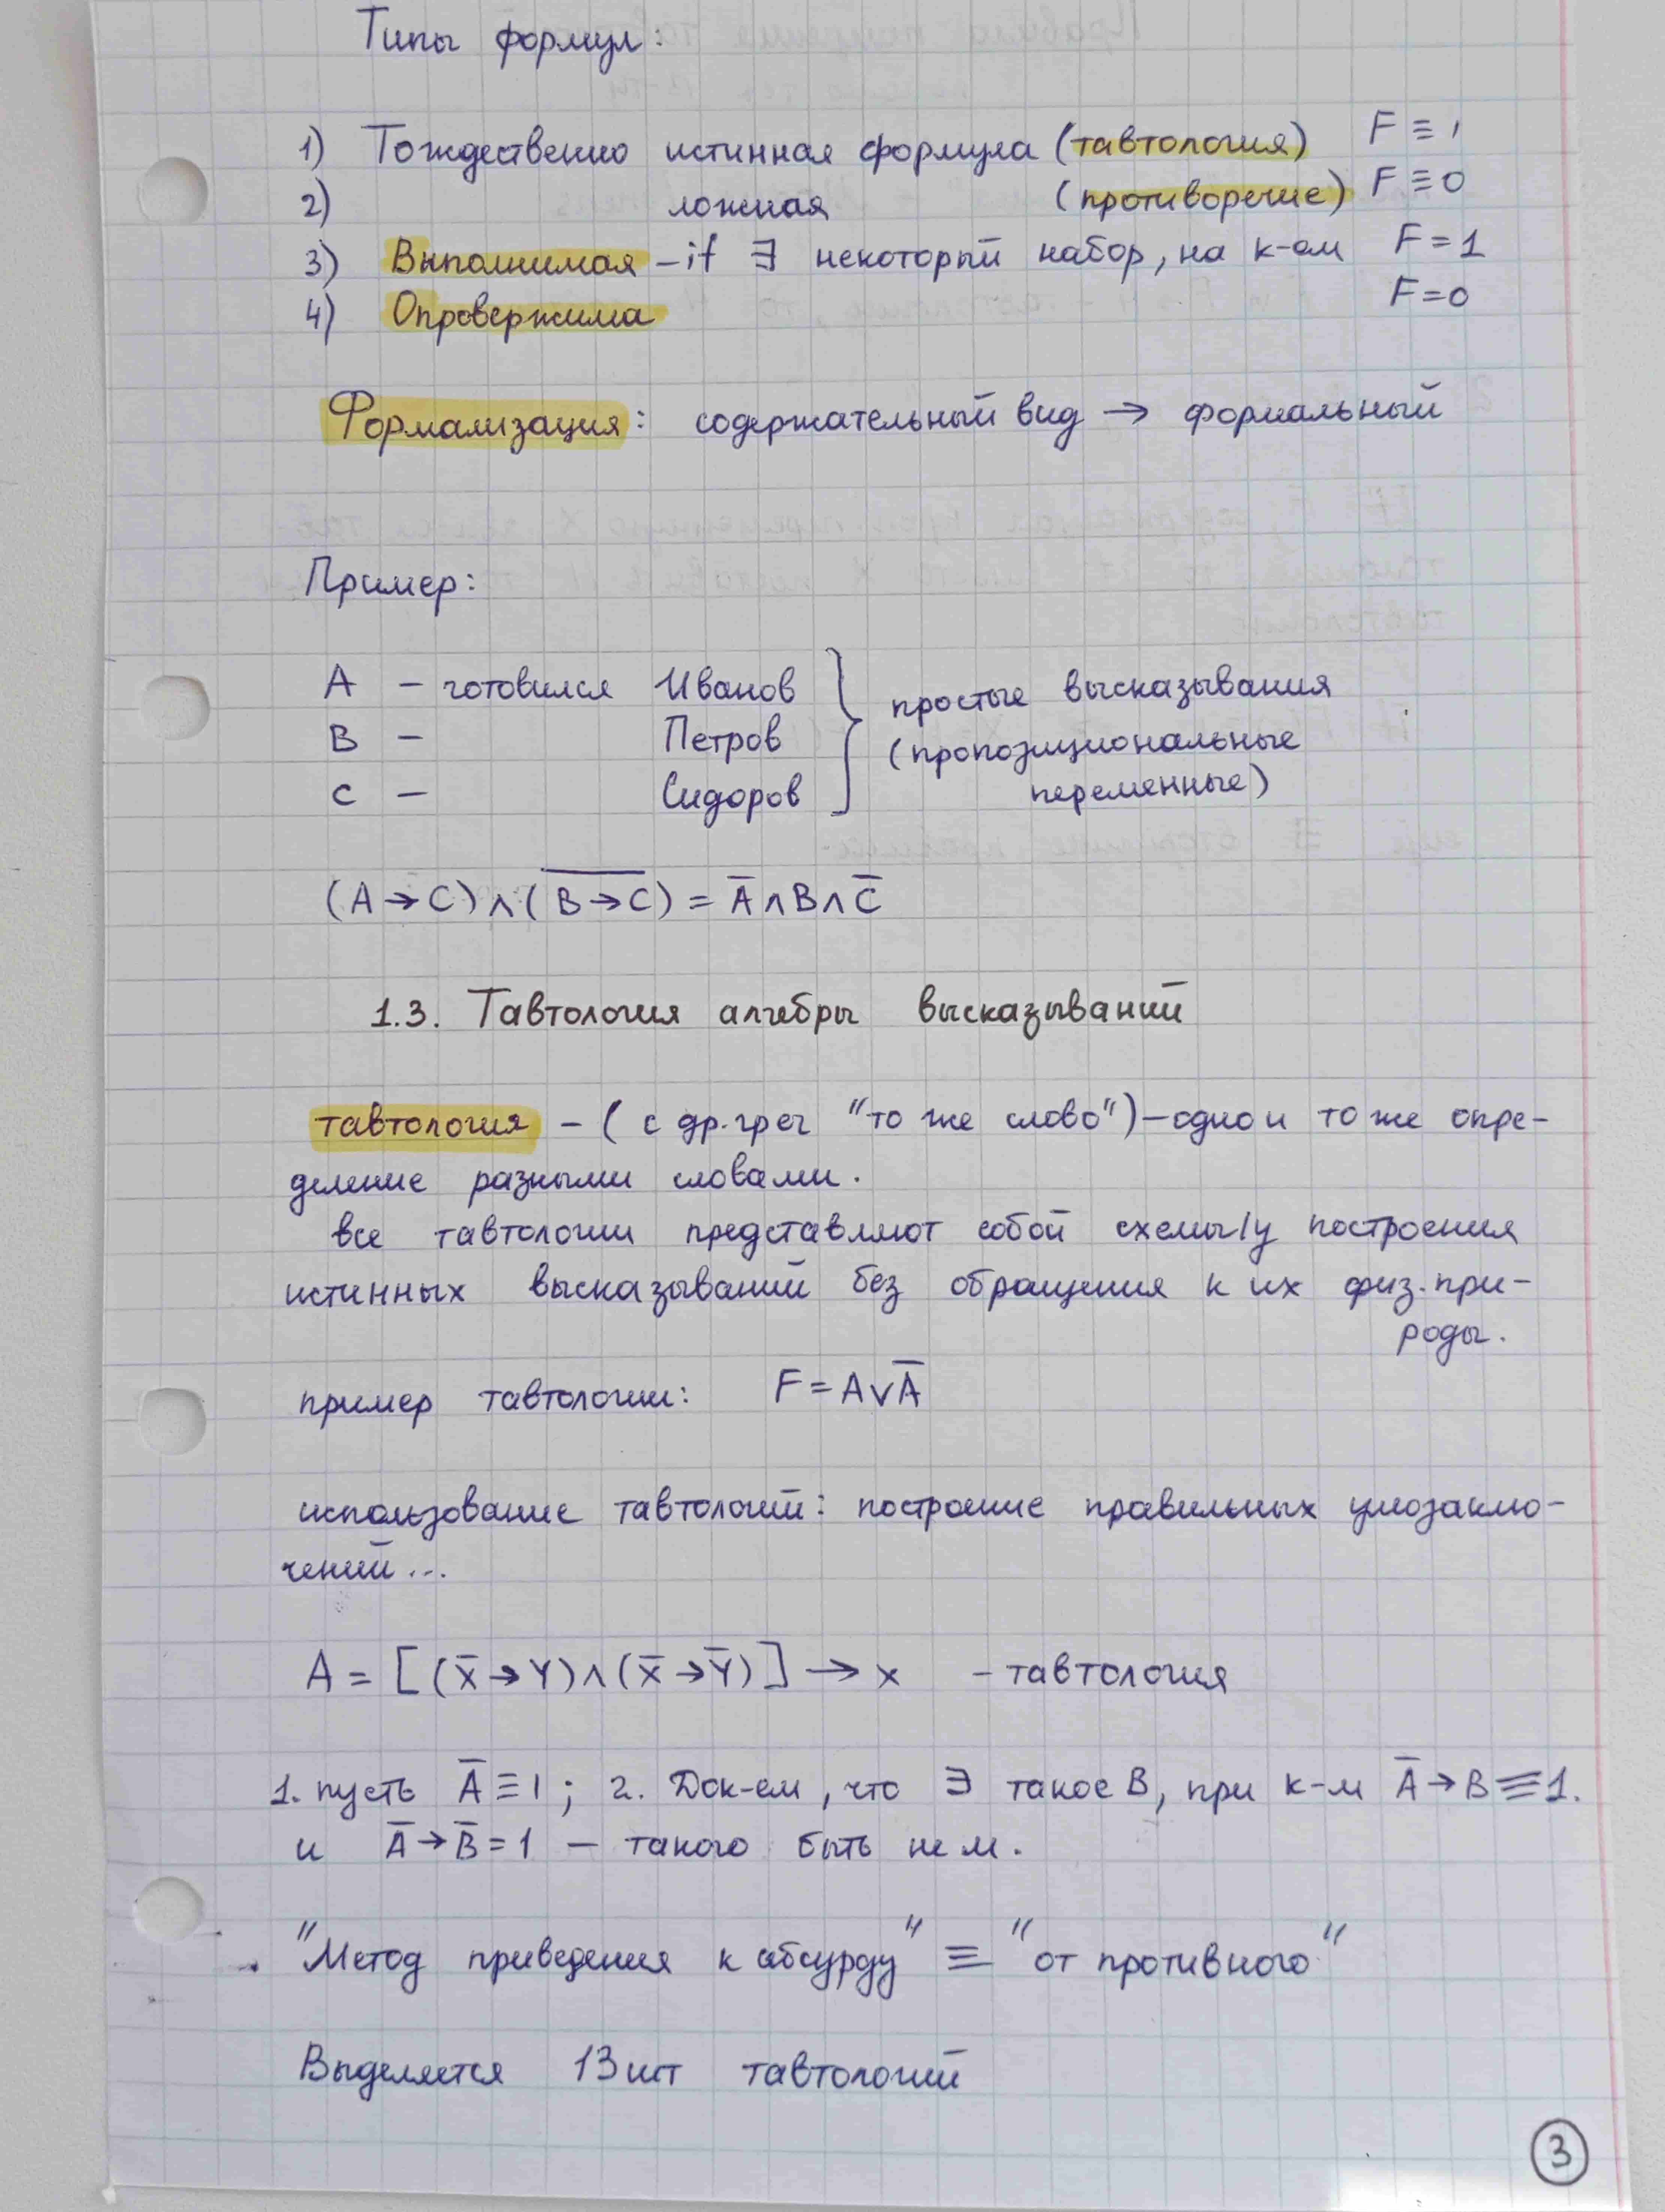 Типы формул:
1) Тождественно истинная формула (тавтология) F ≡ 1
2) ложная (противоречие) F ≡ 0
3) Выполнимая – if ∃ некоторый набор, на к-ом F = 1
4) Опровержима F = 0
Формализация: содержательный вид → формальный
Пример:
A – готовился Иванов
B – Петров
C – Сидоров
простые высказывания
(пропозициональные
переменные)
(A → C) ∧ (B̅ ̅→̅ ̅C̅) = A̅ ∧ B ∧ C̅
1.3. Тавтология алгебры высказываний
тавтология – ( с др.греч "то же слово") – одно и то же опре-
деление разными словами.
все тавтологии представляют собой схемы/у построения
истинных высказываний без обращения к их физ. при-
роды.
пример тавтологии: F = A ∨ A̅
использование тавтологий: построение правильных умозаклю-
чений...
A = [(x̅ → Y) ∧ (x̅ → Y̅)] → x – тавтология
1. пусть A̅ ≡ 1; 2. Док-ем, что ∃ такое B, при к-м A̅ → B ≡ 1.
и A̅ → B̅ = 1 – такого быть не м.
"Метод приведения к абсурду" ≡ "от противного"
Выделяется 13 шт тавтологий
3